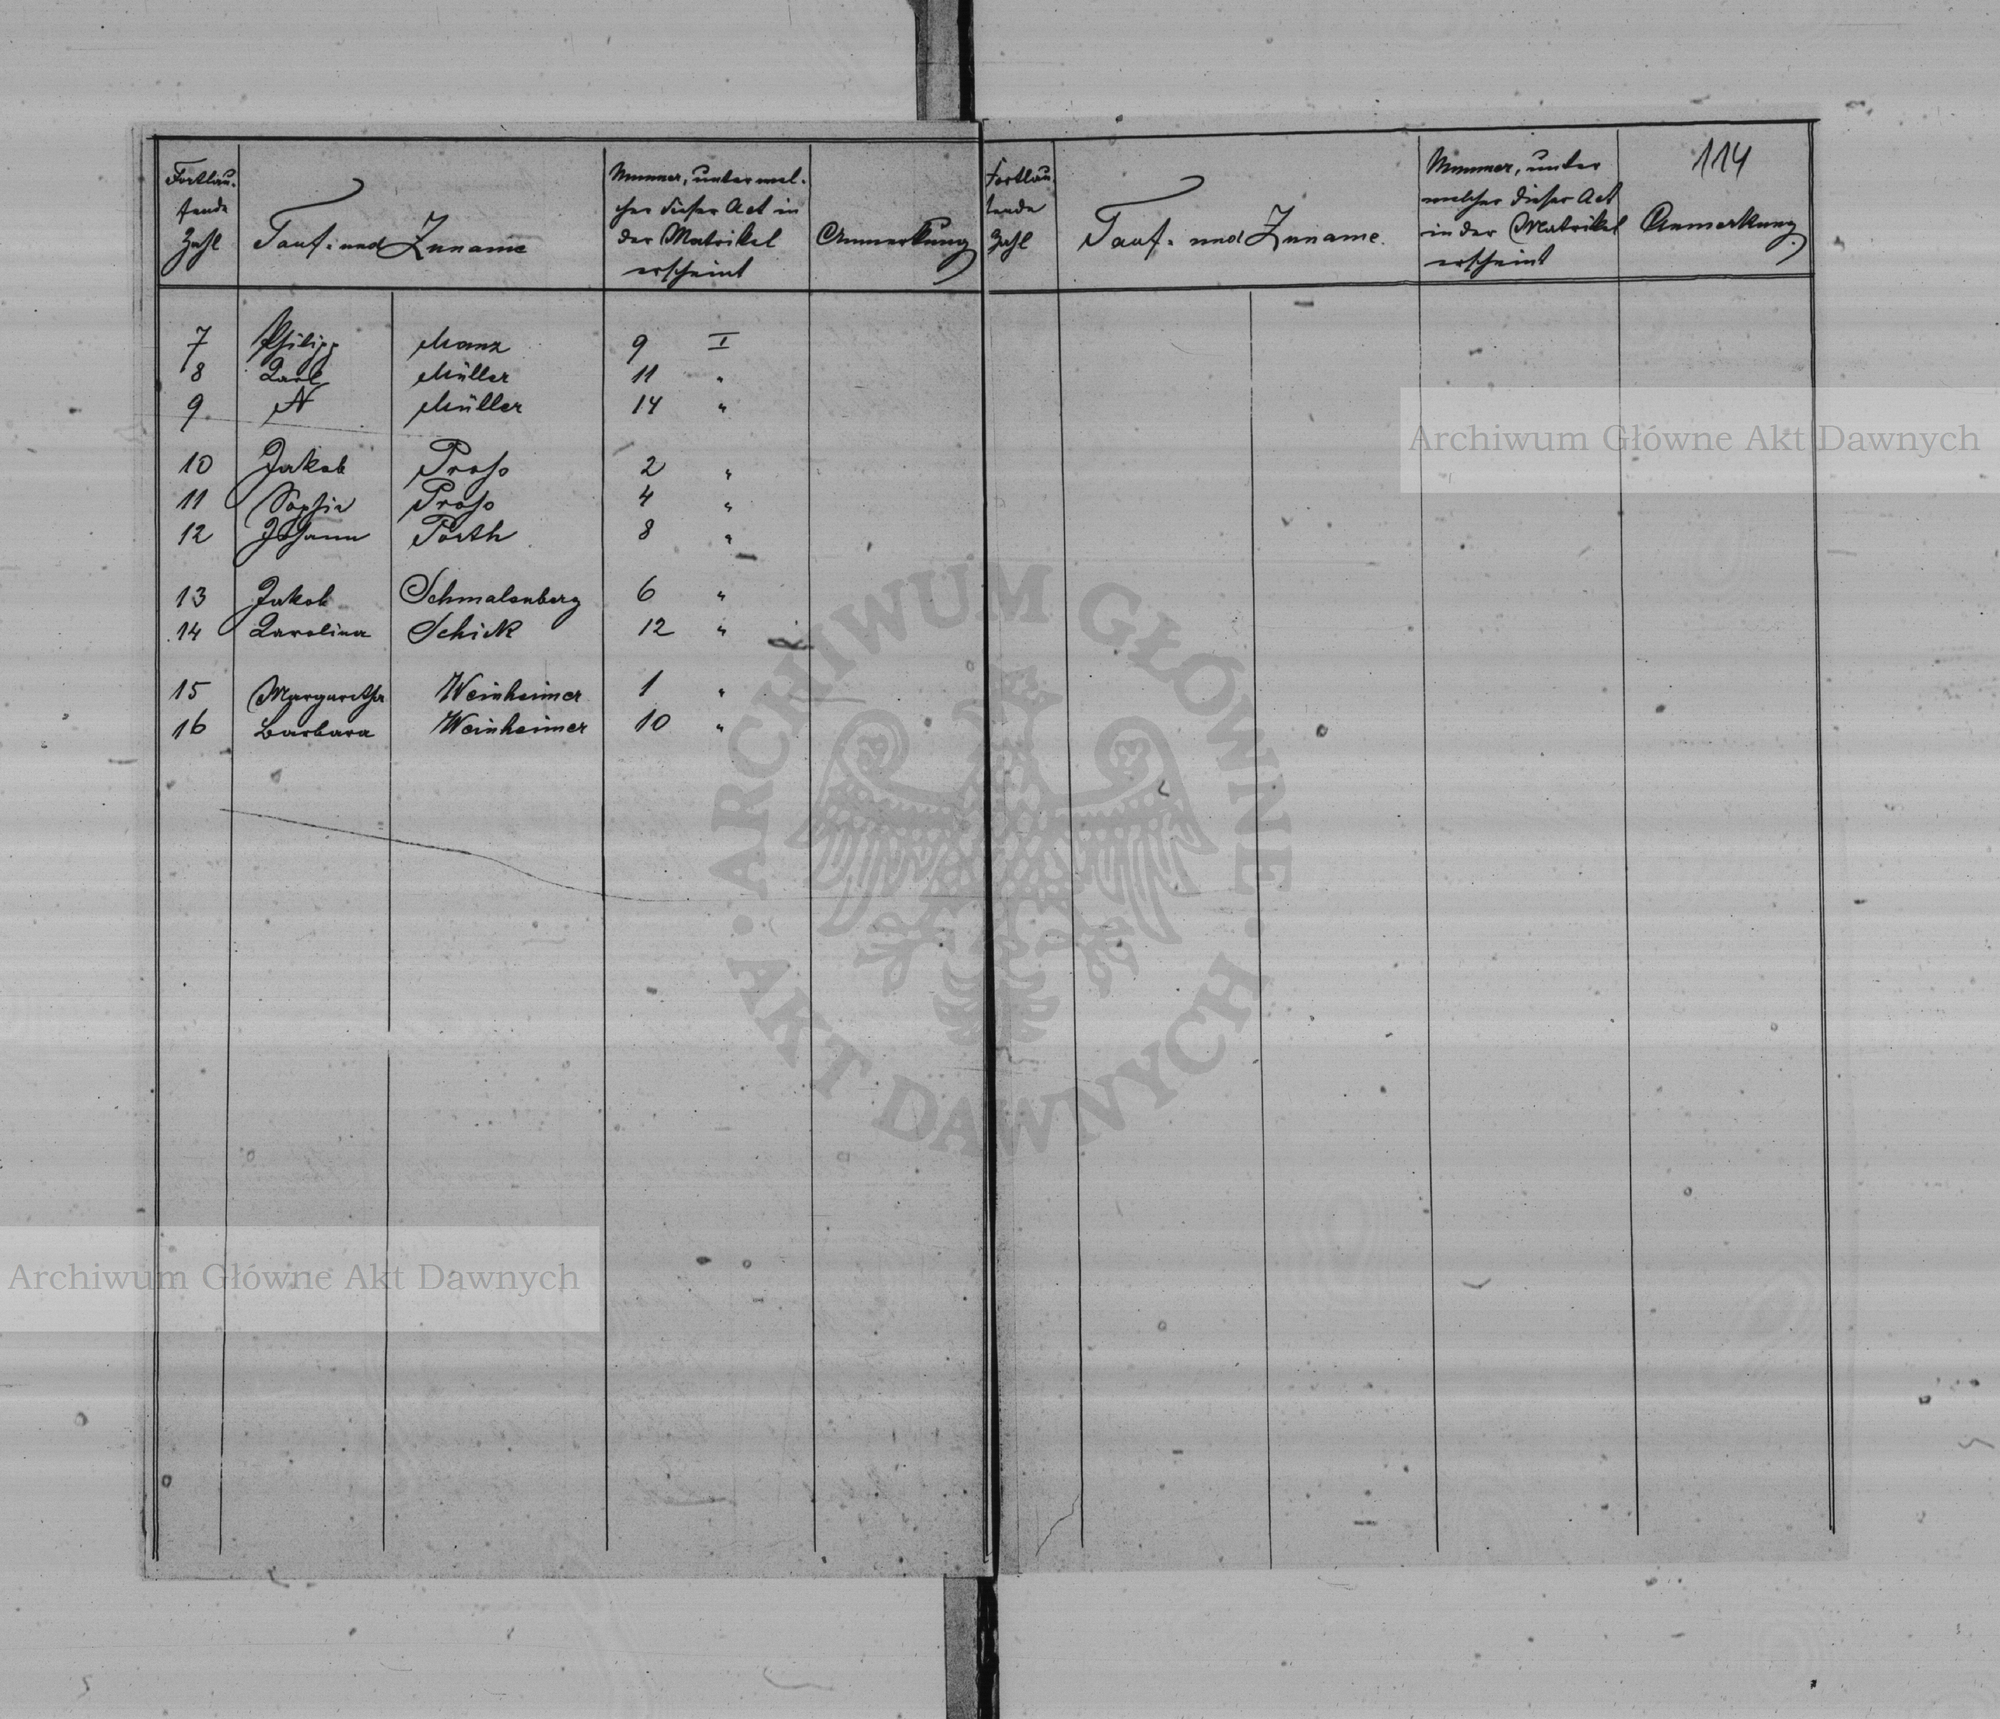 Fortlau-
fende
Zahl
Tauf- und Zuname
Nummer, unter wel-
cher dieser Act in
der Matrikel
erscheint
Anmerkung
7 Philipp Manz 9 I
8 Karl Müller 11 "
9 N Müller 14 "
10 Jakob Proso 2 "
11 Sophie Proso 4 "
12 Johann Porth 8 "
13 Jakob Schmalenberg 6 "
14 Karolina Schick 12 "
15 Margaretha Weinheimer 1 "
16 Barbara Weinheimer 10 "
Fortlau
fende
Zahl
Tauf- und Zuname.
Nummer, unter
welcher dieser Act
in der Matrikel
erscheint
114
Anmerkung
Archiwum Główne Akt Dawnych
ARCHIWUM GŁÓWNE
AKT DAWNYCH
Archiwum Główne Akt Dawnych